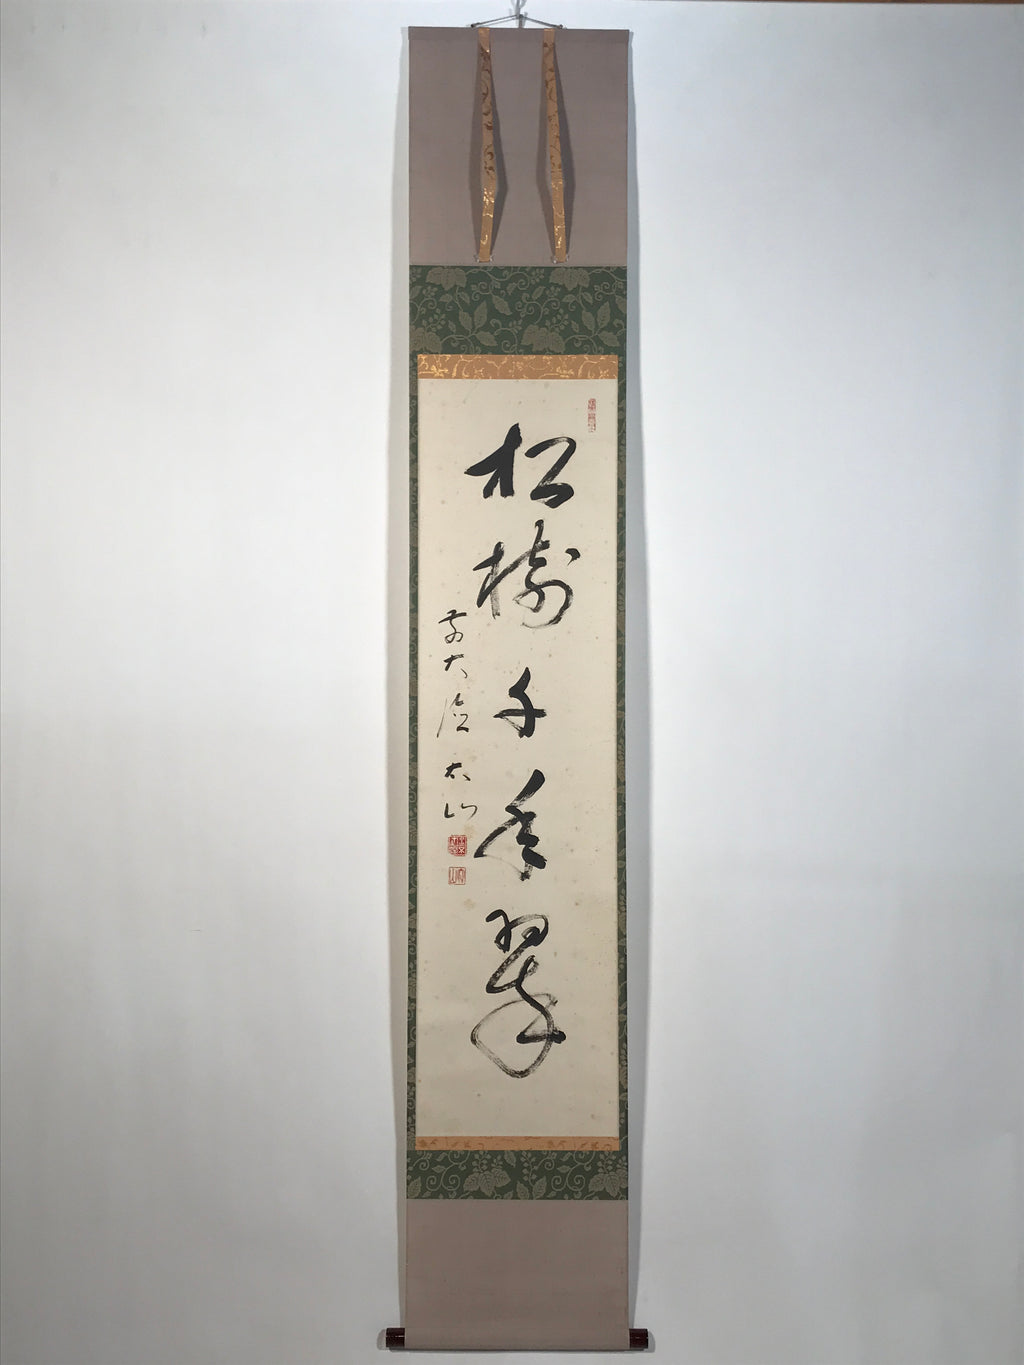 松樹千年翠
前大徳太山